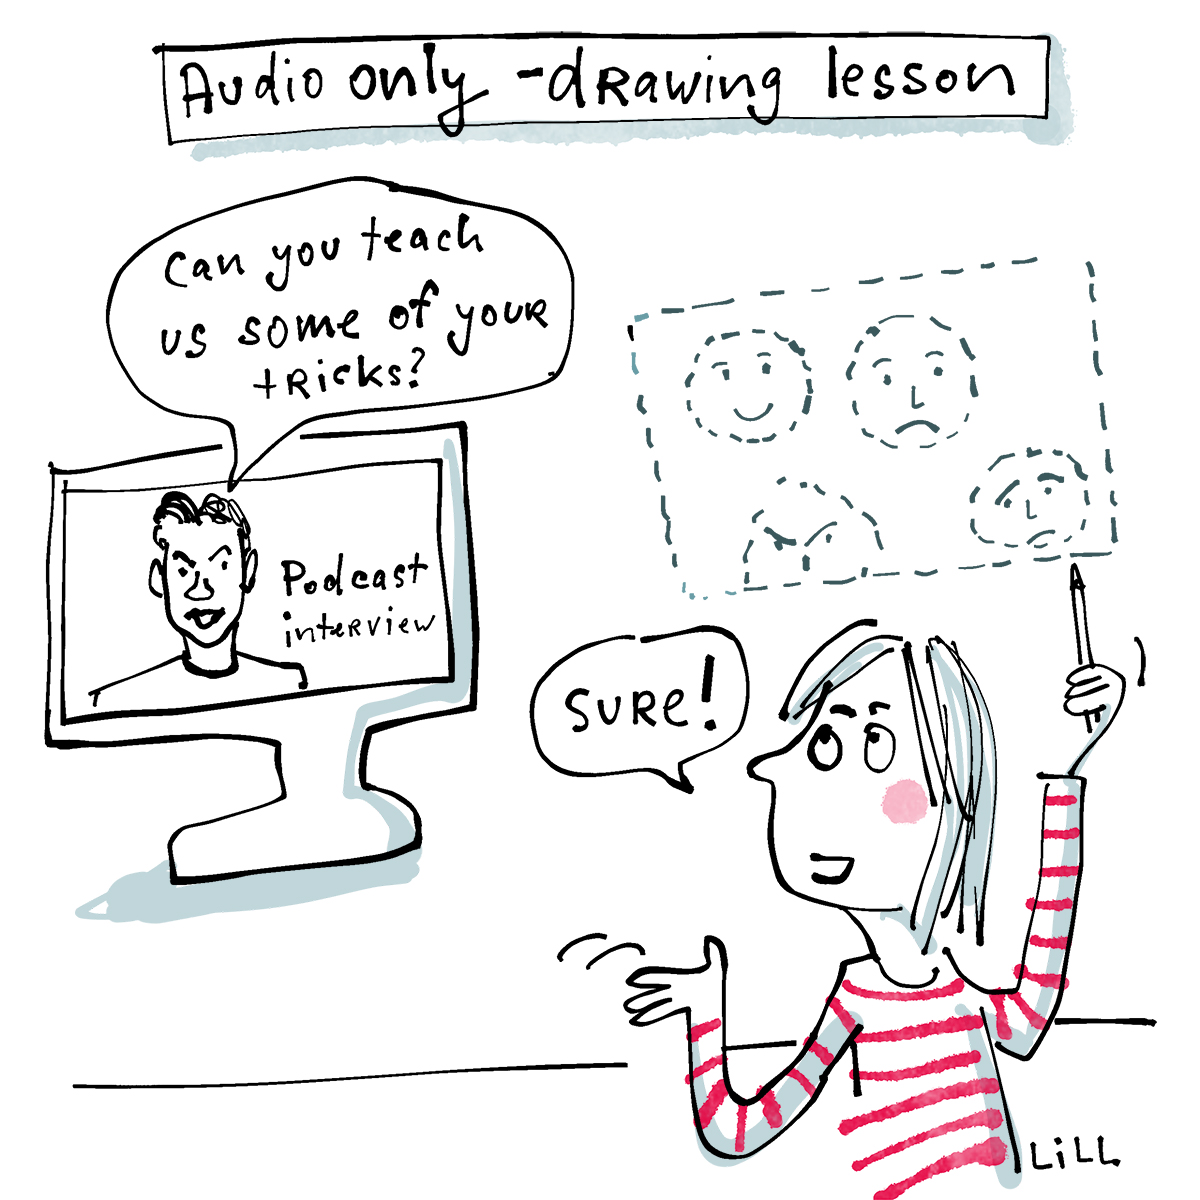 Audio only - drawing lesson
Can you teach
us some of your
tricks?
Podcast
interview
SURE!
LiLL